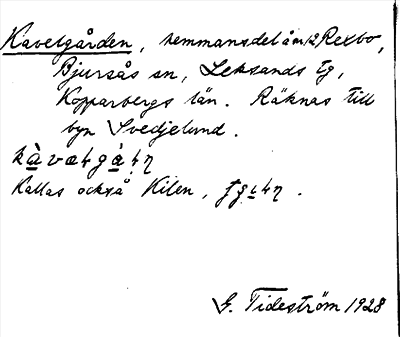 Kavelgården, hemmansdel å n:12 Rexbo,
Bjursås sn, Leksands tg,
Kopparbergs län. Räknas till
byn Svedjelund.
Kallas också Kilen,
G. Tideström 1928